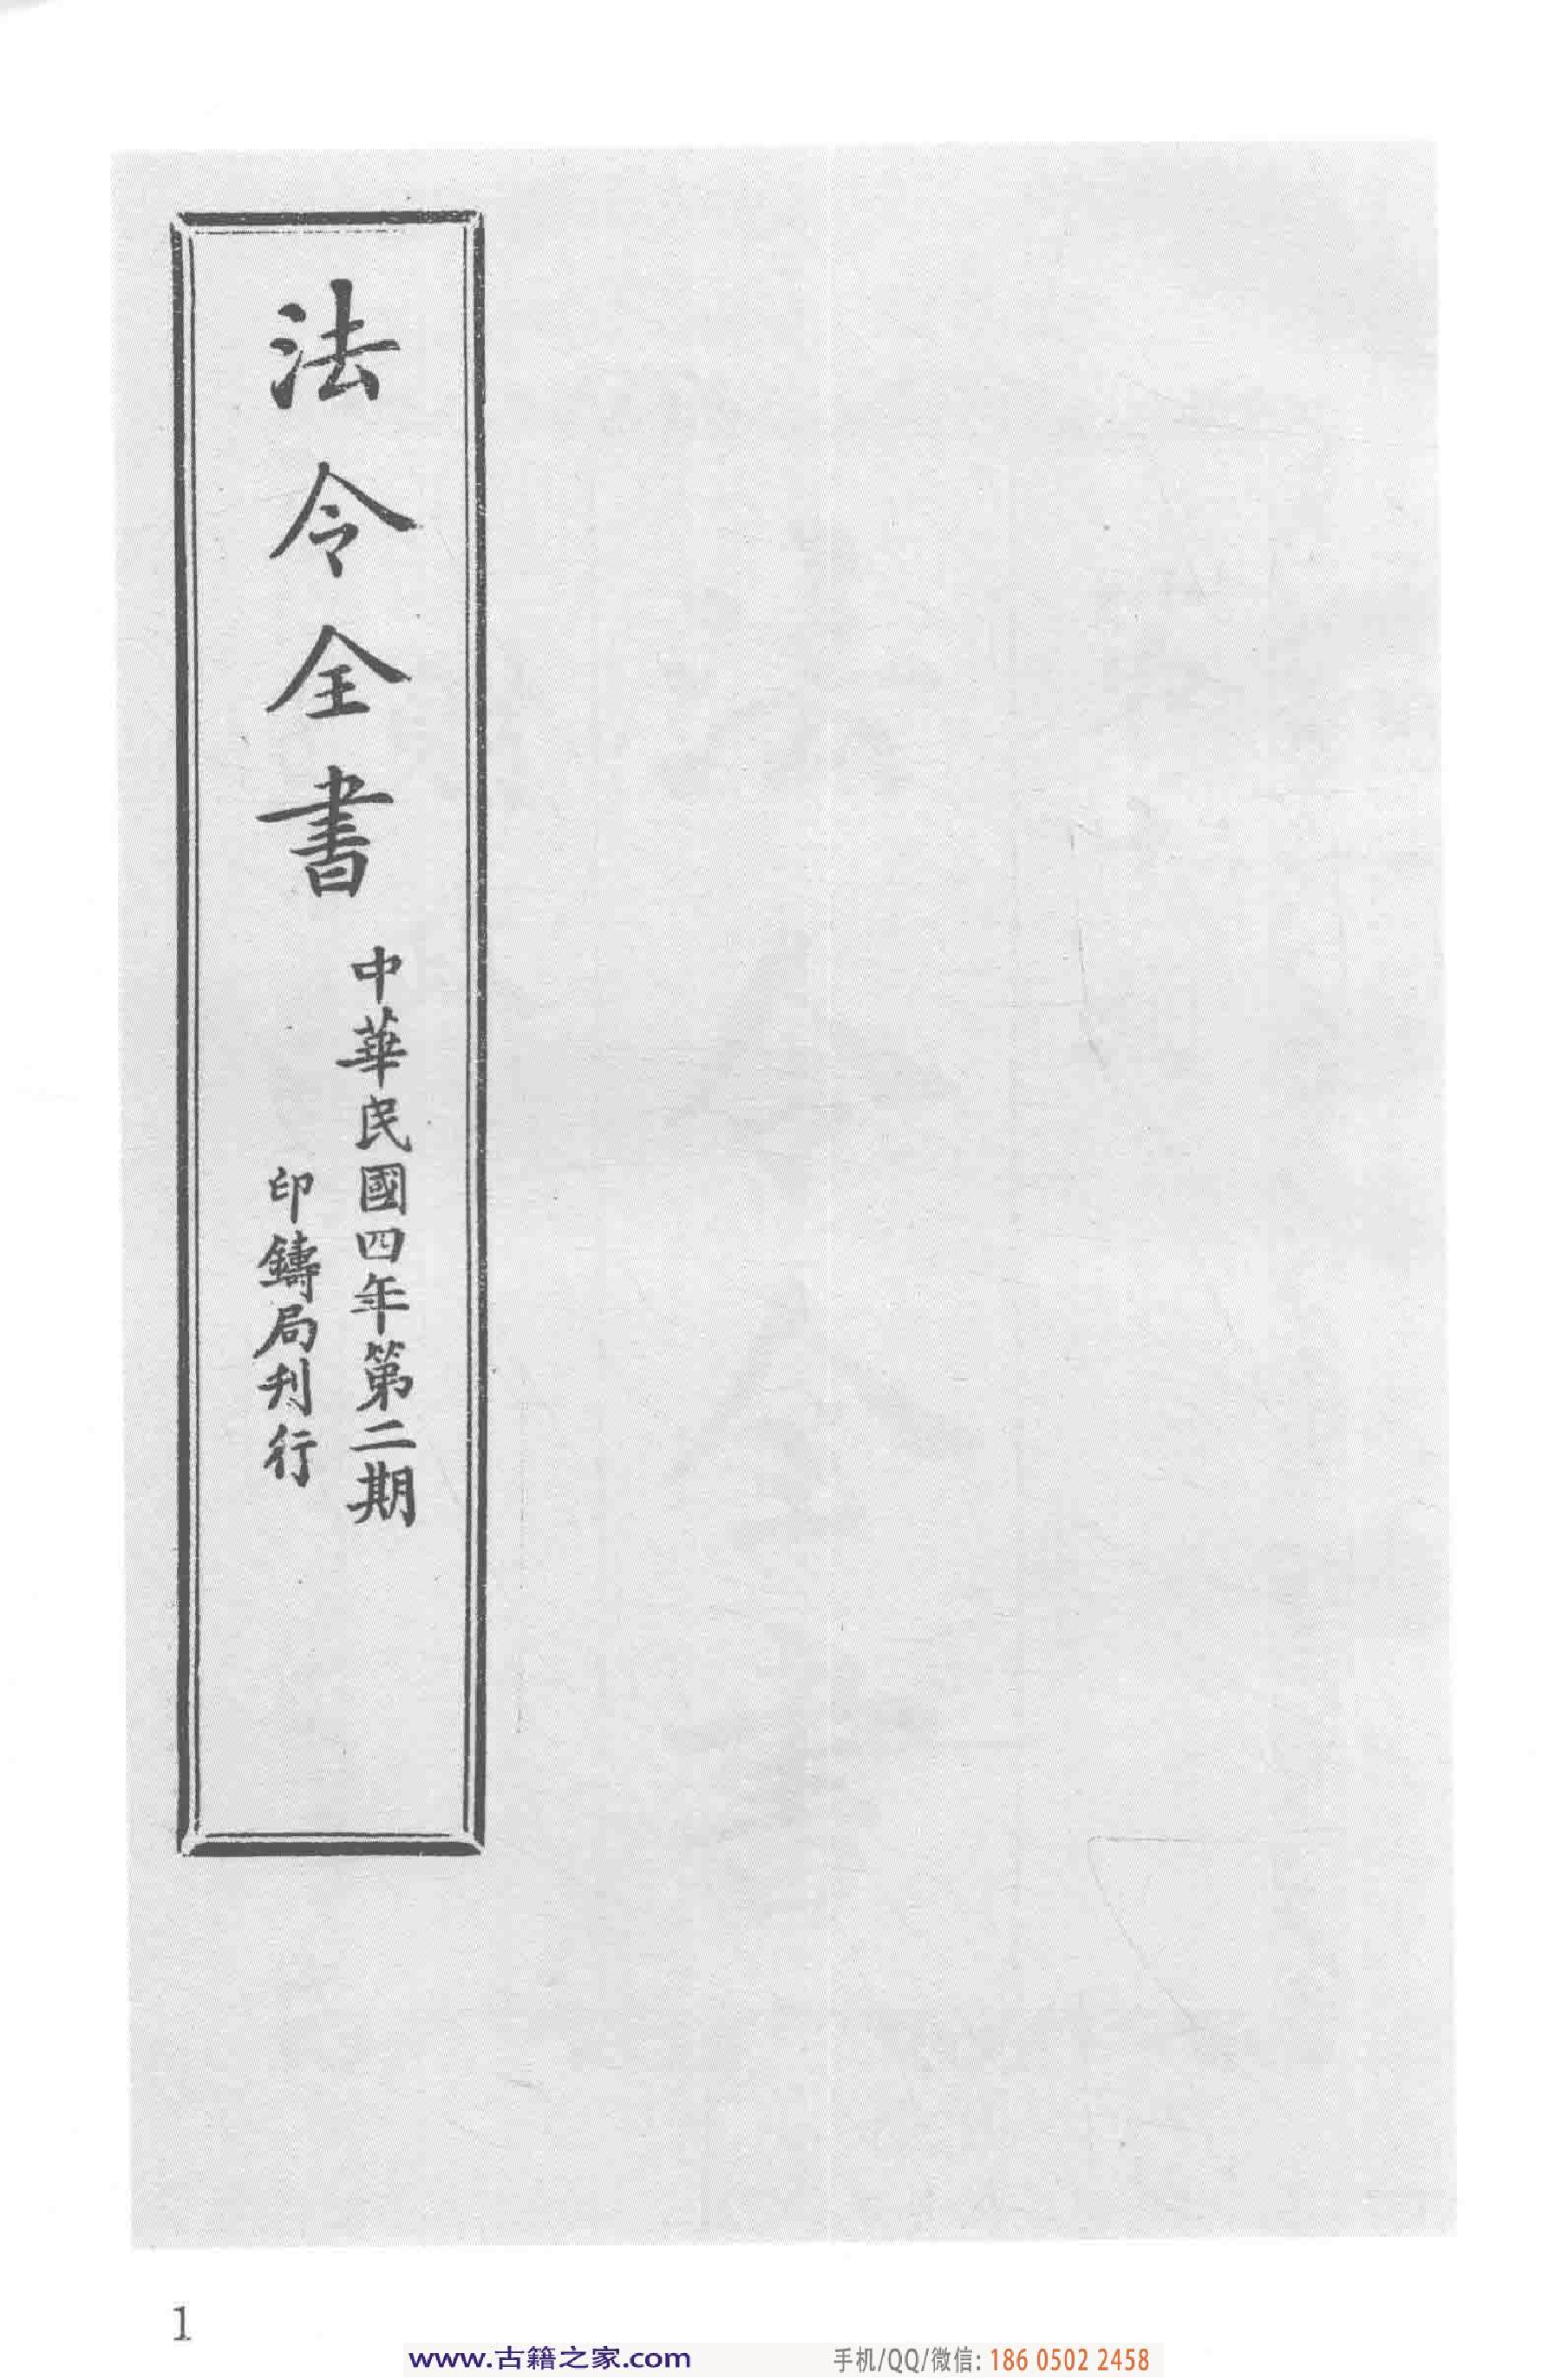 法令全書
中華民國四年第二期
印鑄局刊行
1
www.古籍之家.com
手机/QQ/微信: 186 0502 2458